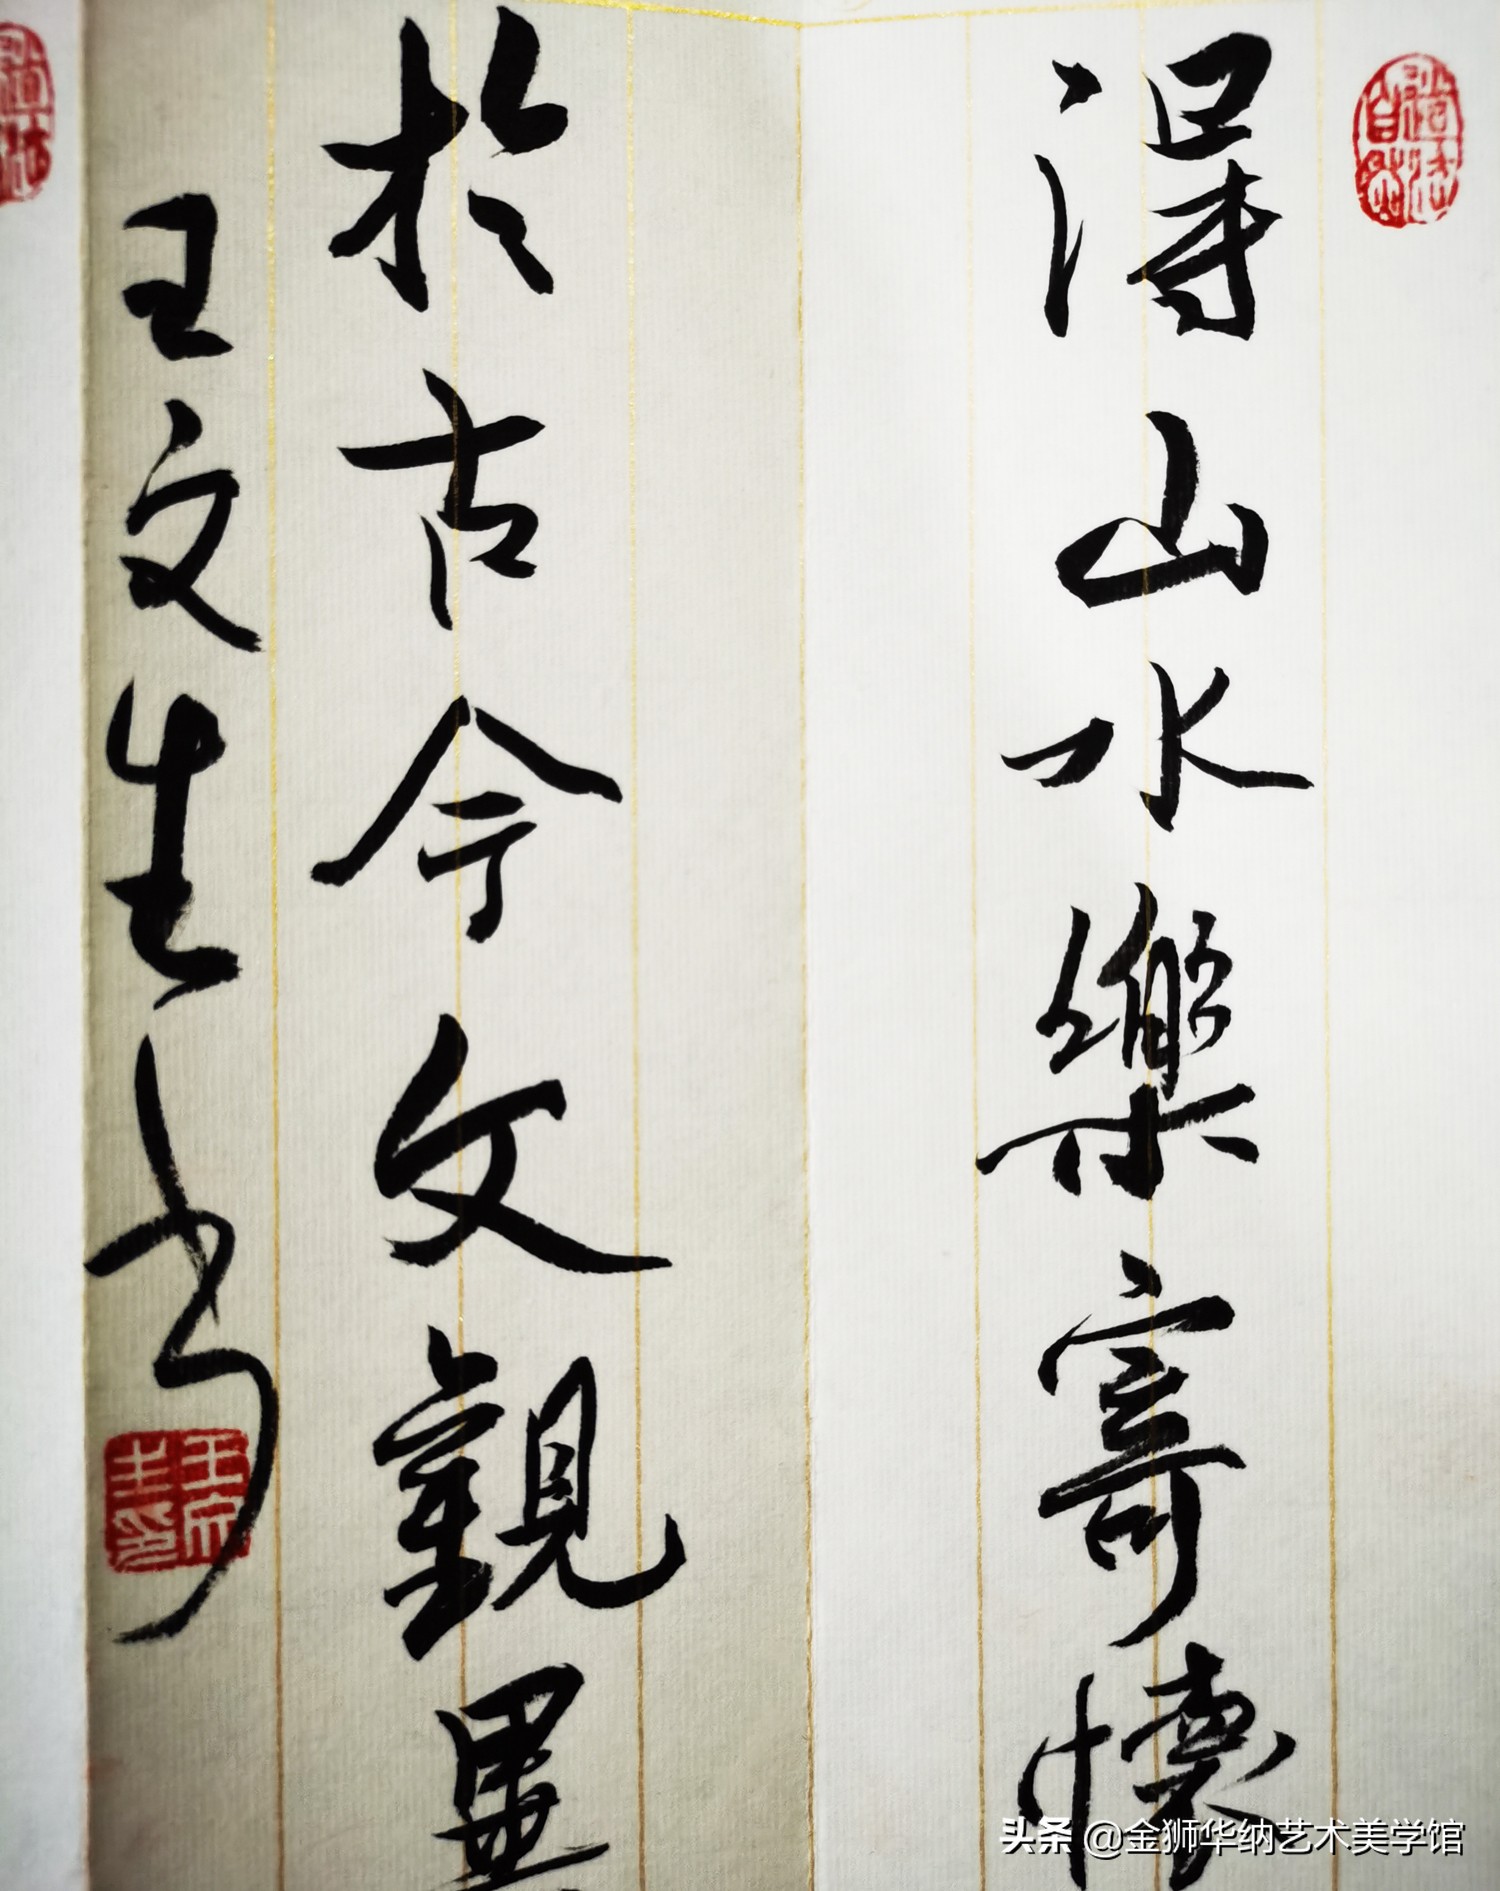 道法自然
得山水樂寄懷
於古今文觀異
王文生书
头条 @金狮华纳艺术美学馆